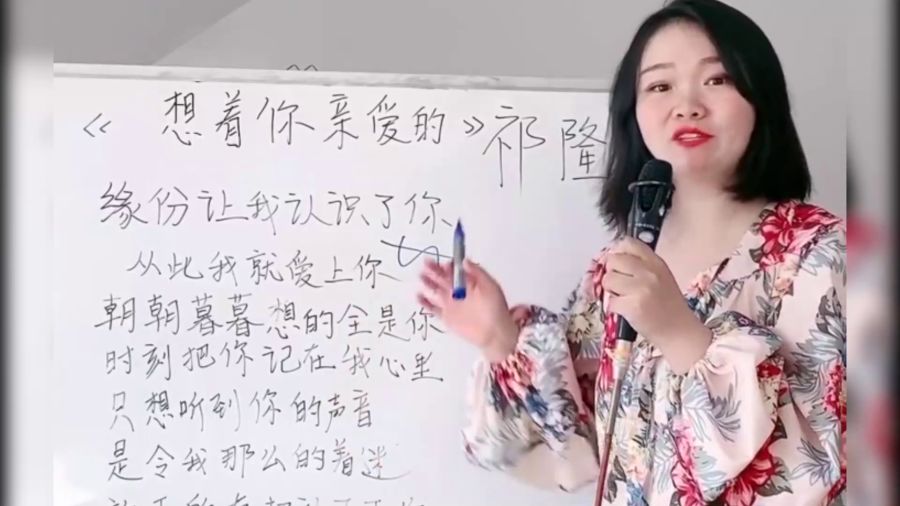 《想着你亲爱的》祁隆
缘份让我认识了你
从此我就爱上你
朝朝暮暮想的全是你
时刻把你记在我心里
只想听到你的声音
是令我那么的着迷